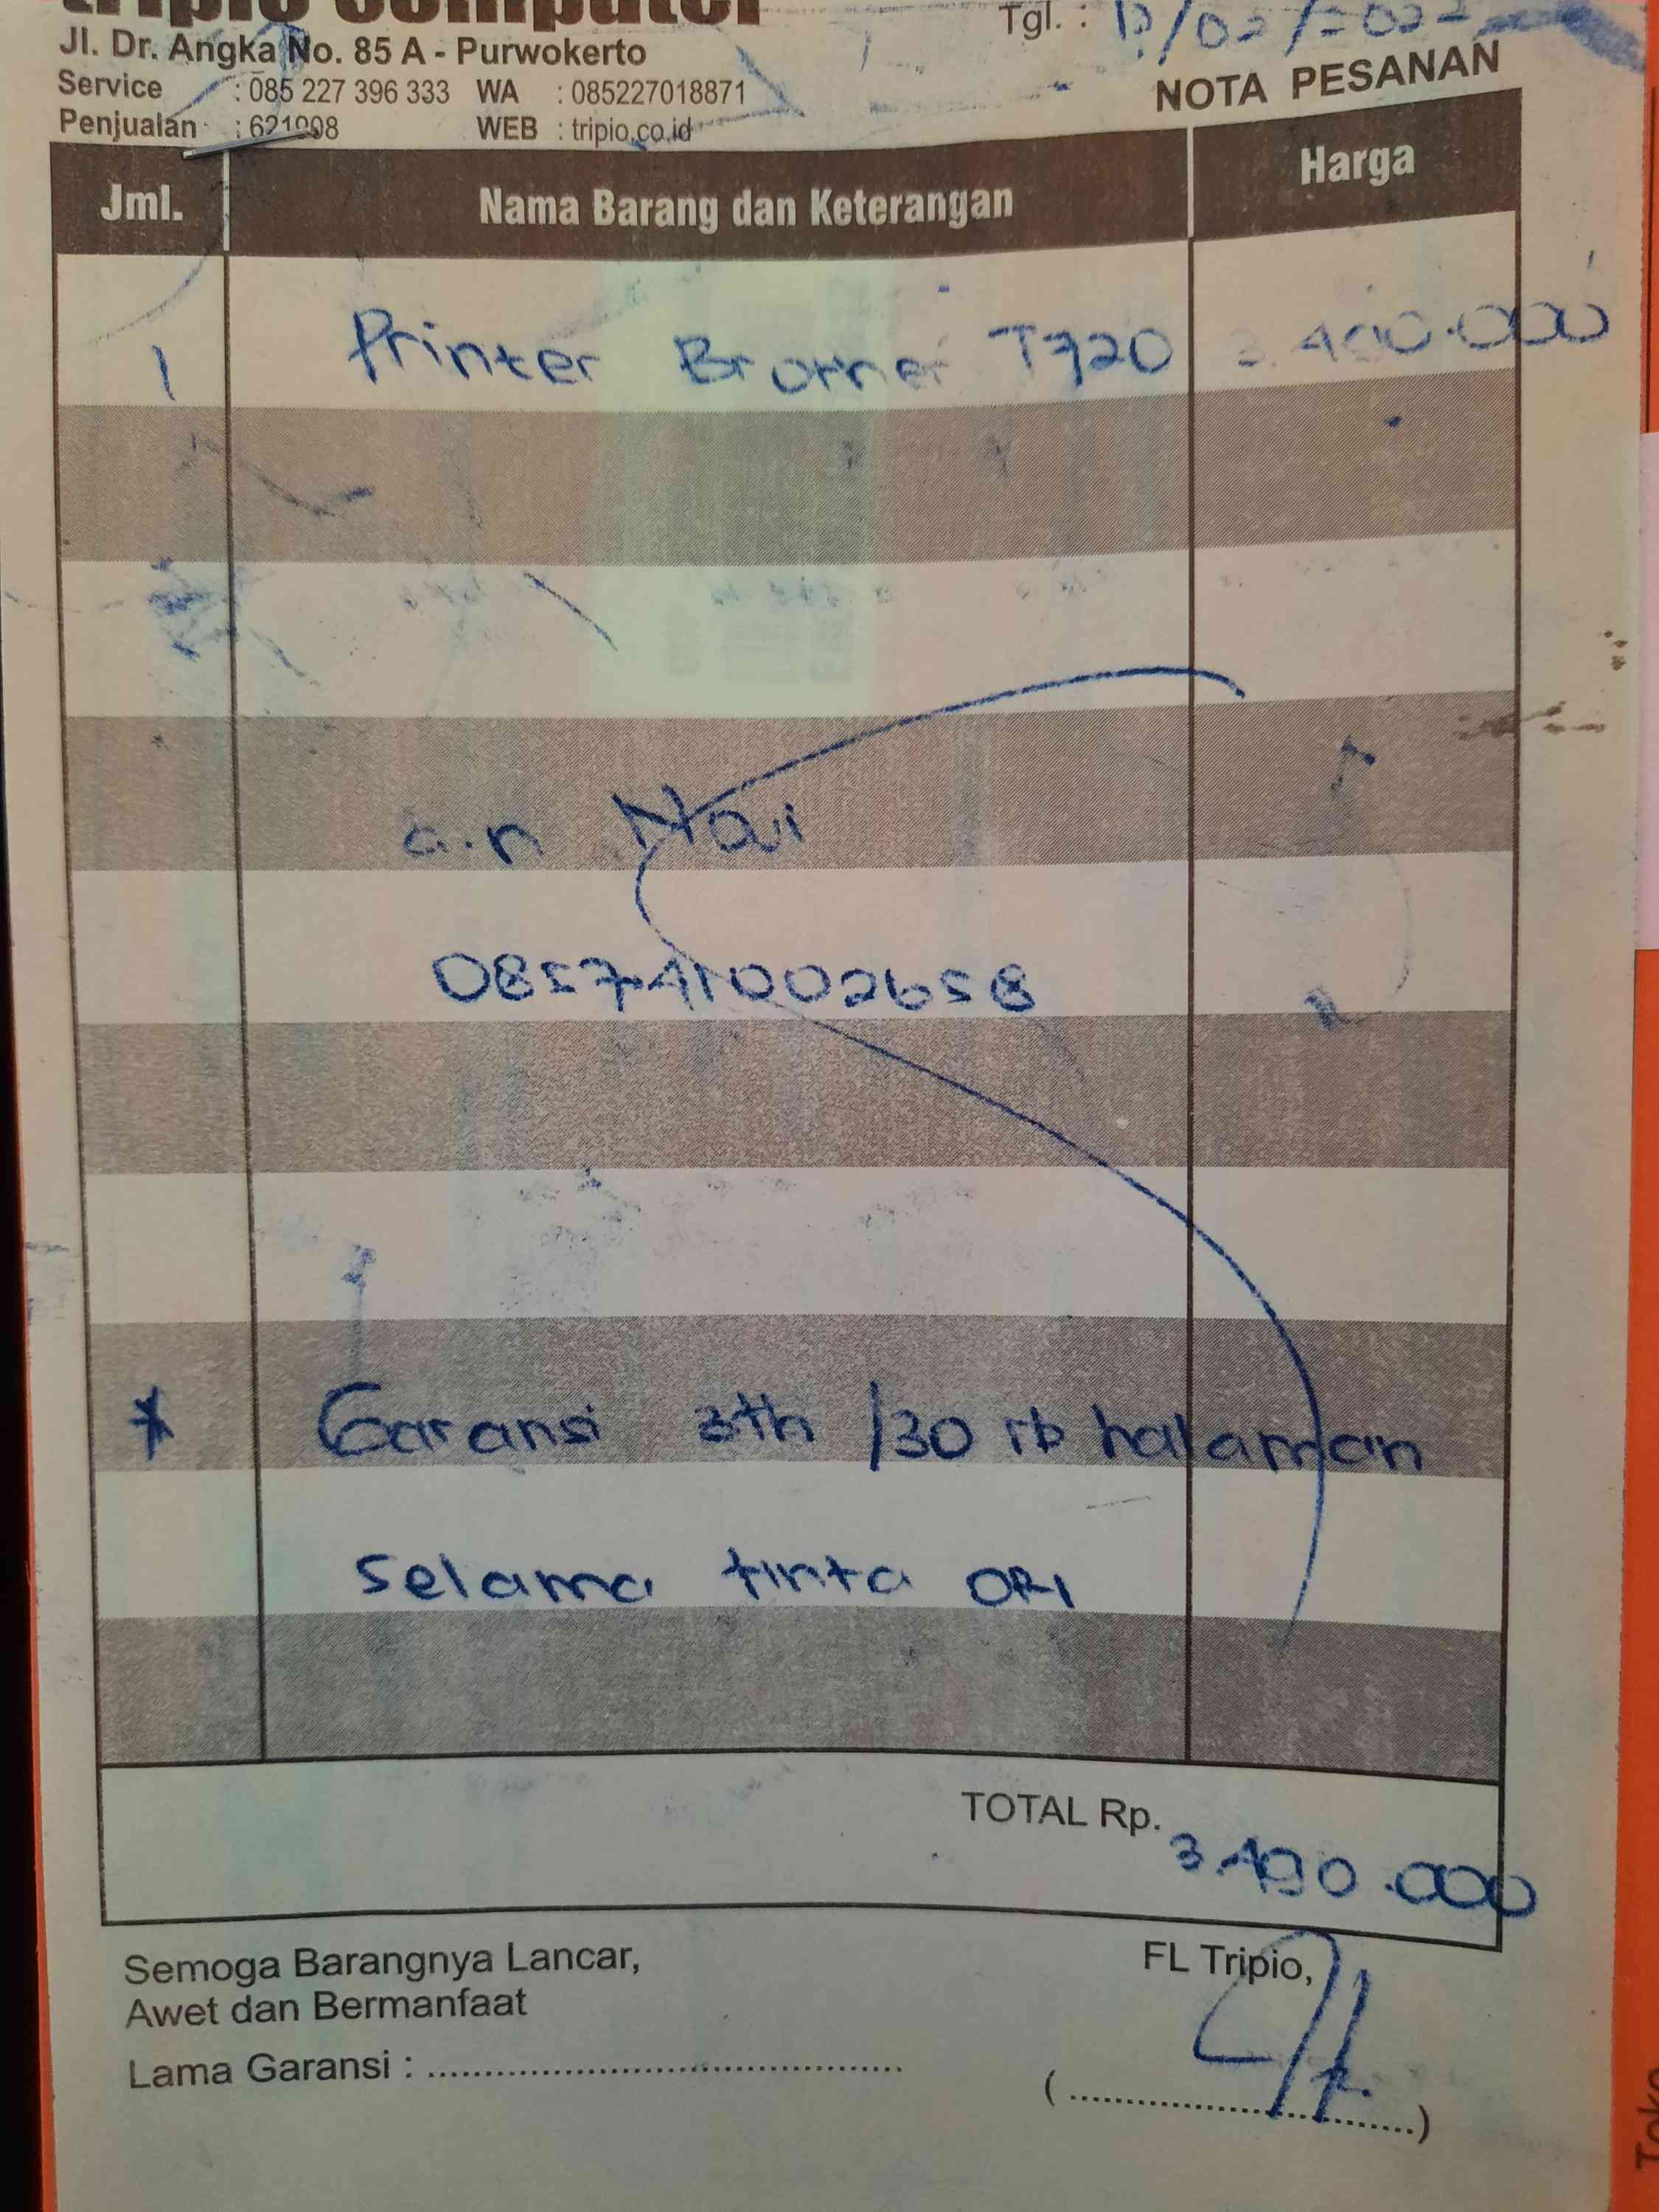 tripio computer
Jl. Dr. Angka No. 85 A - Purwokerto
Service : 085 227 396 333 WA : 085227018871
Penjualan : 621008 WEB : tripio.co.id
Tgl. :
NOTA PESANAN
Jml. Nama Barang dan Keterangan Harga
1 Printer Brother T720 3.490.000
a.n
085741002658
* Garansi 3th /30 rb halaman
selama tinta ORI
TOTAL Rp. 3.490.000
Semoga Barangnya Lancar,
Awet dan Bermanfaat
Lama Garansi : ..........
FL Tripio,
(..........)